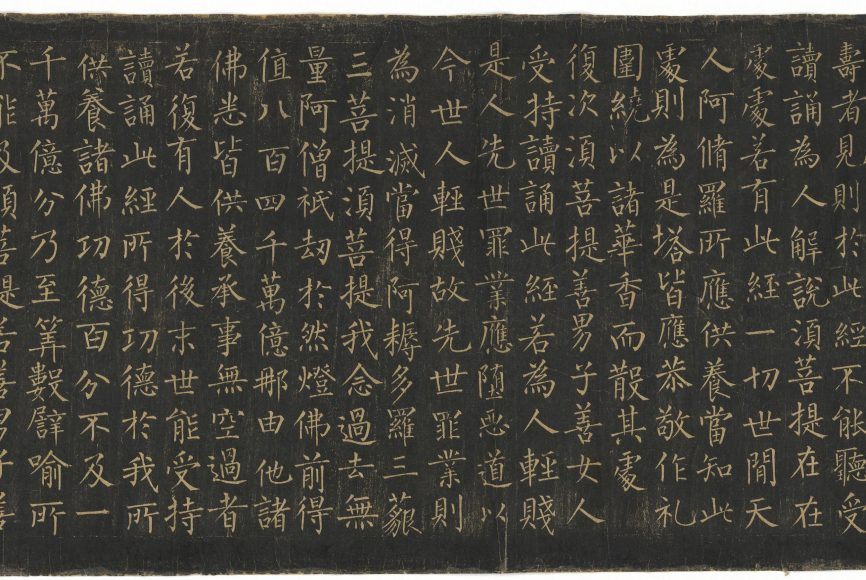 壽者見則於此經不能聽受
讀誦為人解說湏菩提在在
處處若有此經一切世間天
人阿脩羅所應供養當知此
處則為是塔皆應恭敬作礼
圍繞以諸華香而散其處
復次湏菩提善男子善女人
受持讀誦此經若為人輕賤
是人先世罪業應墮惡道以
今世人輕賤故先世罪業則
為消滅當得阿耨多羅三藐
三菩提湏菩提我念過去無
量阿僧祇劫於然燈佛前得
值八百四千萬億那由他諸
佛悉皆供養承事無空過者
若復有人於後末世能受持
讀誦此經所得功德於我所
供養諸佛功德百分不及一
千萬億分乃至筭數譬喻所
不能及湏菩提若善男子善